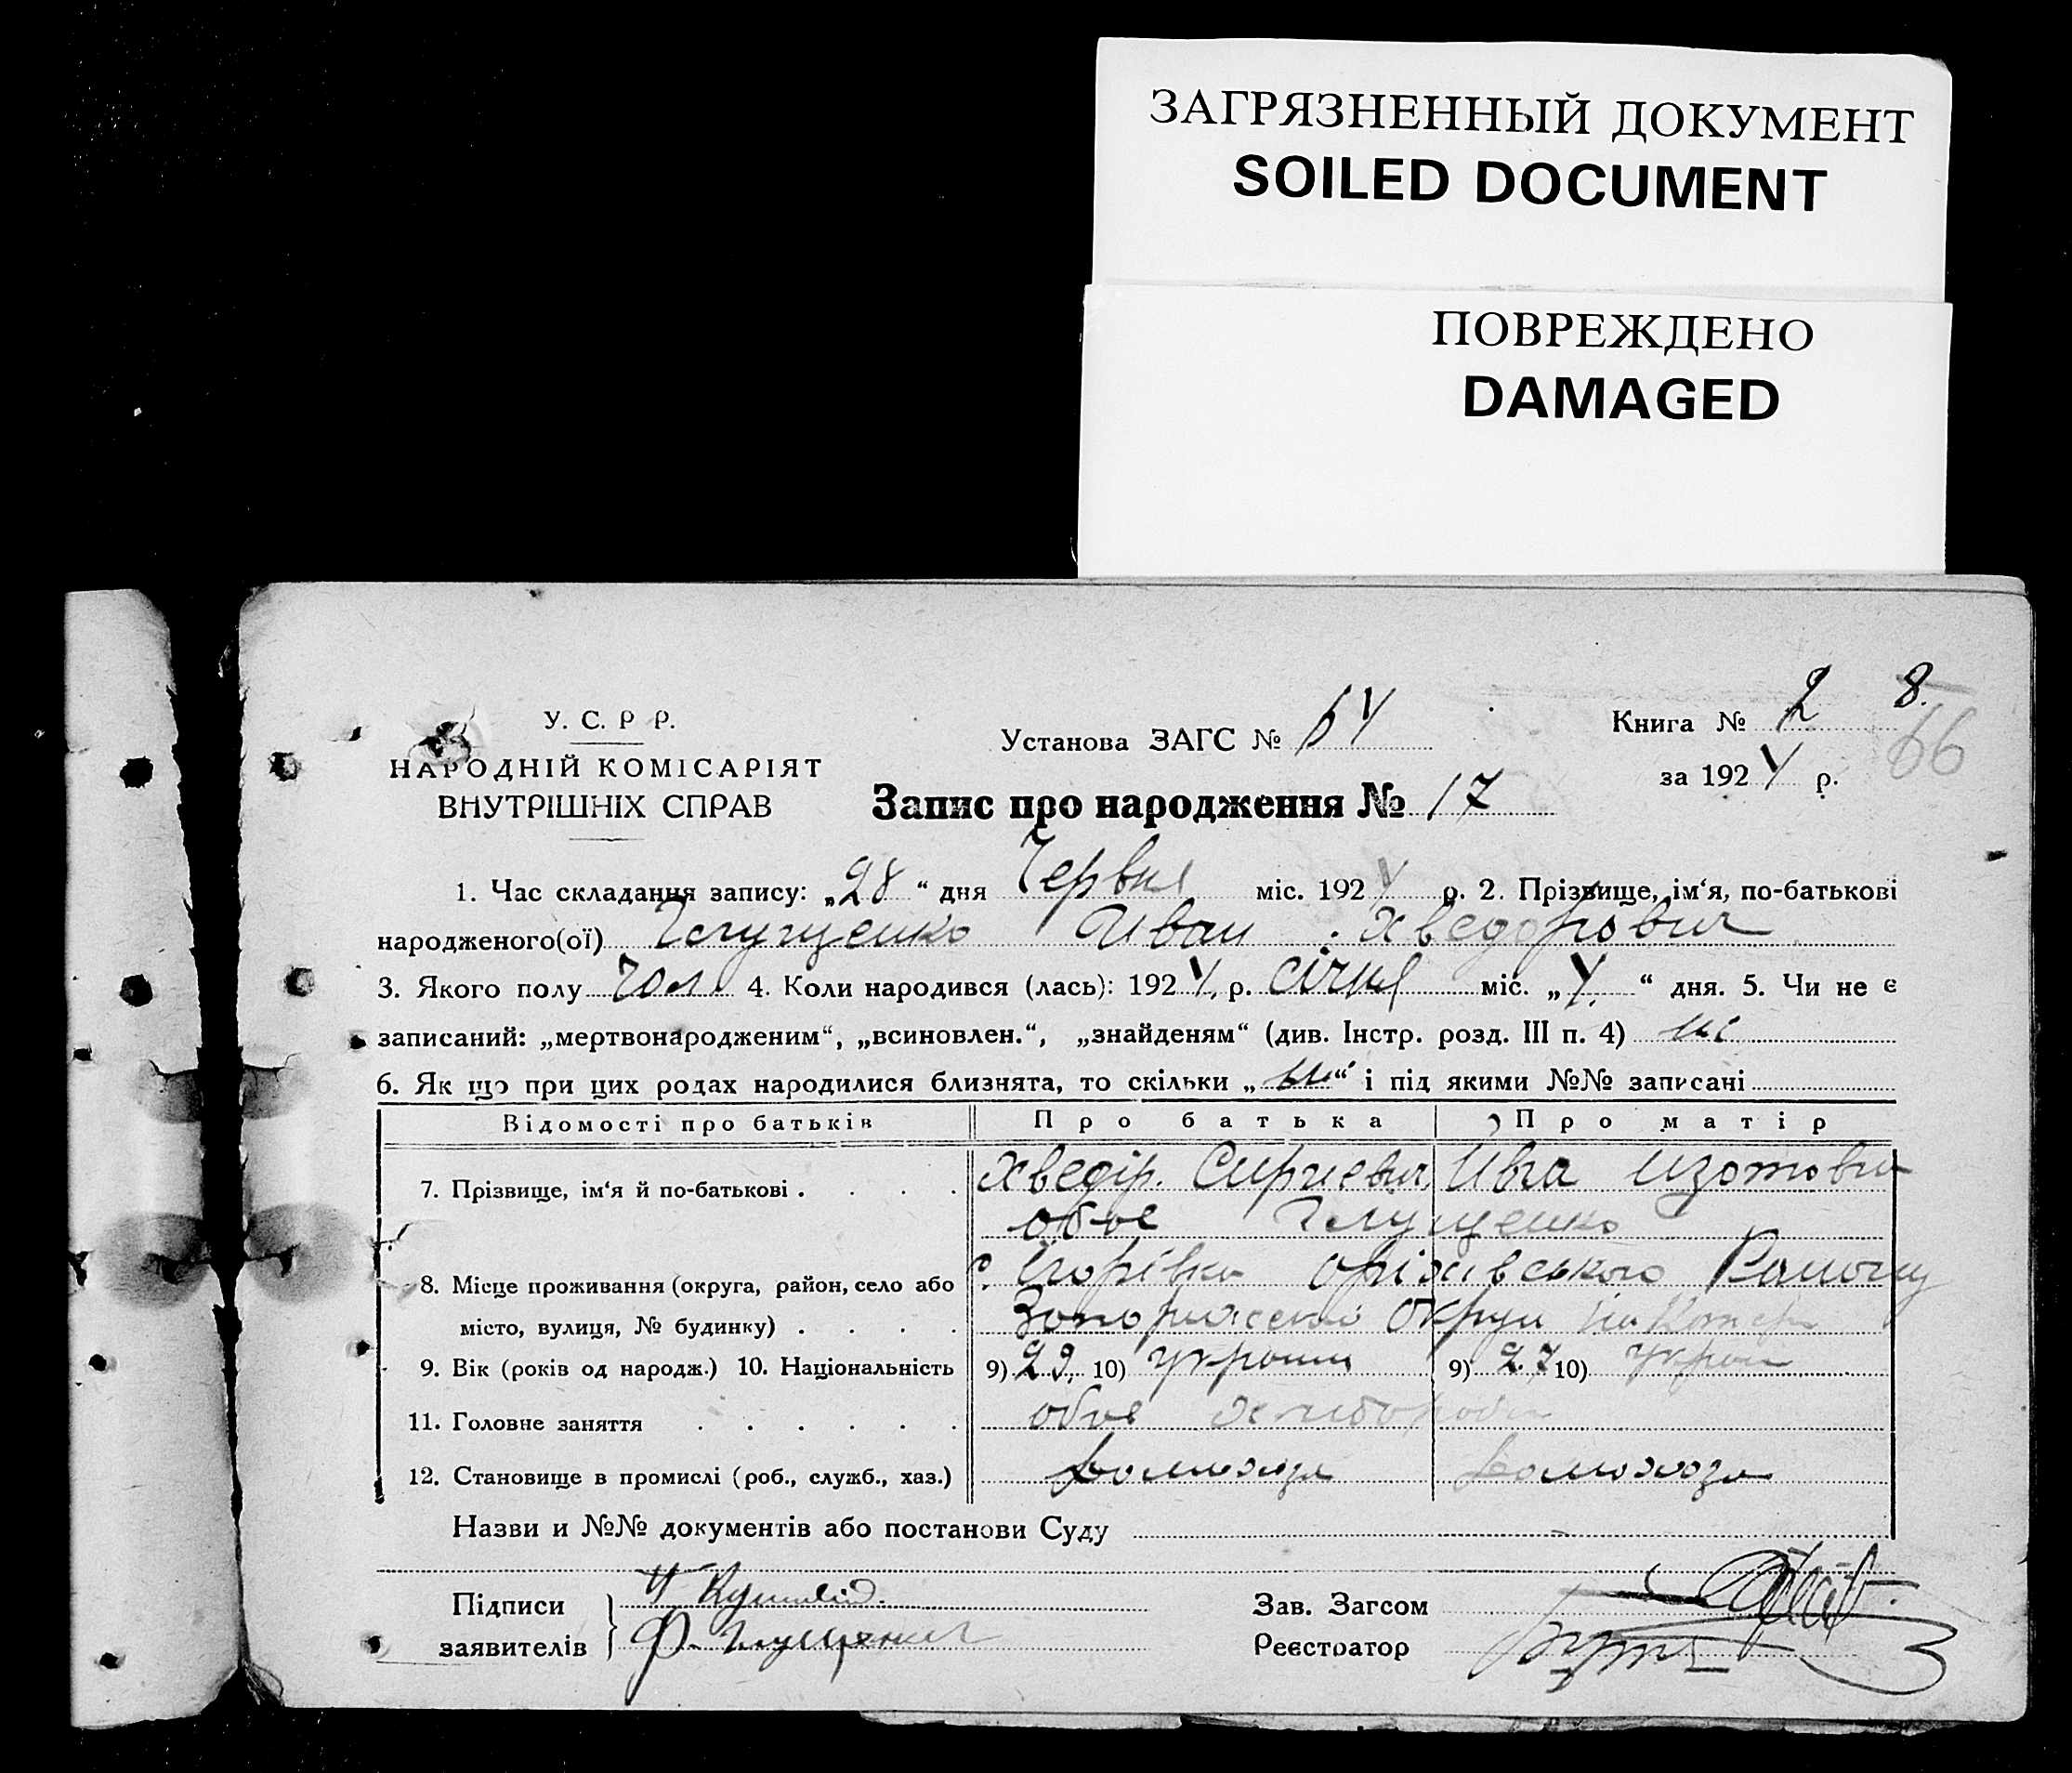 ЗАГРЯЗНЕННЫЙ ДОКУМЕНТ
SOILED DOCUMENT
ПОВРЕЖДЕНО
DAMAGED
У. С. Р Р.
НАРОДНІЙ КОМІСАРІЯТ
ВНУТРІШНІХ СПРАВ
Установа ЗАГС №
Книга № 2 8.
66
за 1924 р.
Запис про народження № 17
1. Час складання запису: „28“ дня Червня міс. 1924 р. 2. Прізвище, ім‘я, по-батькові
народженого(ої) Глущенко Иван Хведорович
3. Якого полу чол 4. Коли народився (лась): 1924 р. січня міс. „4“ дня. 5. Чи не є
записаний: „мертвонародженим“, „всиновлен.“, „знайденям“ (див. Інстр. розд. III п. 4) ні
6. Як що при цих родах народилися близнята, то скільки „ні“ і під якими №№ записані
Відомості про батьків Про батька Про матір
7. Прізвище, ім‘я й по-батькові . . . . Хведір Сиргиевич Ивга Изотовна
обоє Глущенко
8. Місце проживання (округа, район, село або с. Оріхівського Району
місто, вулиця, № будинку) . . . . Округи
9. Вік (років од народж.) 10. Національність 9) 29. 10) украин 9) 27 10) украи
11. Головне заняття . . . . . . обоє хлібороби
12. Становище в промислі (роб., служб., хаз.)
Назви и №№ документів або постанови Суду
Підписи
заявителів Ф. Глущенко
Зав. Загсом
Реєстратор